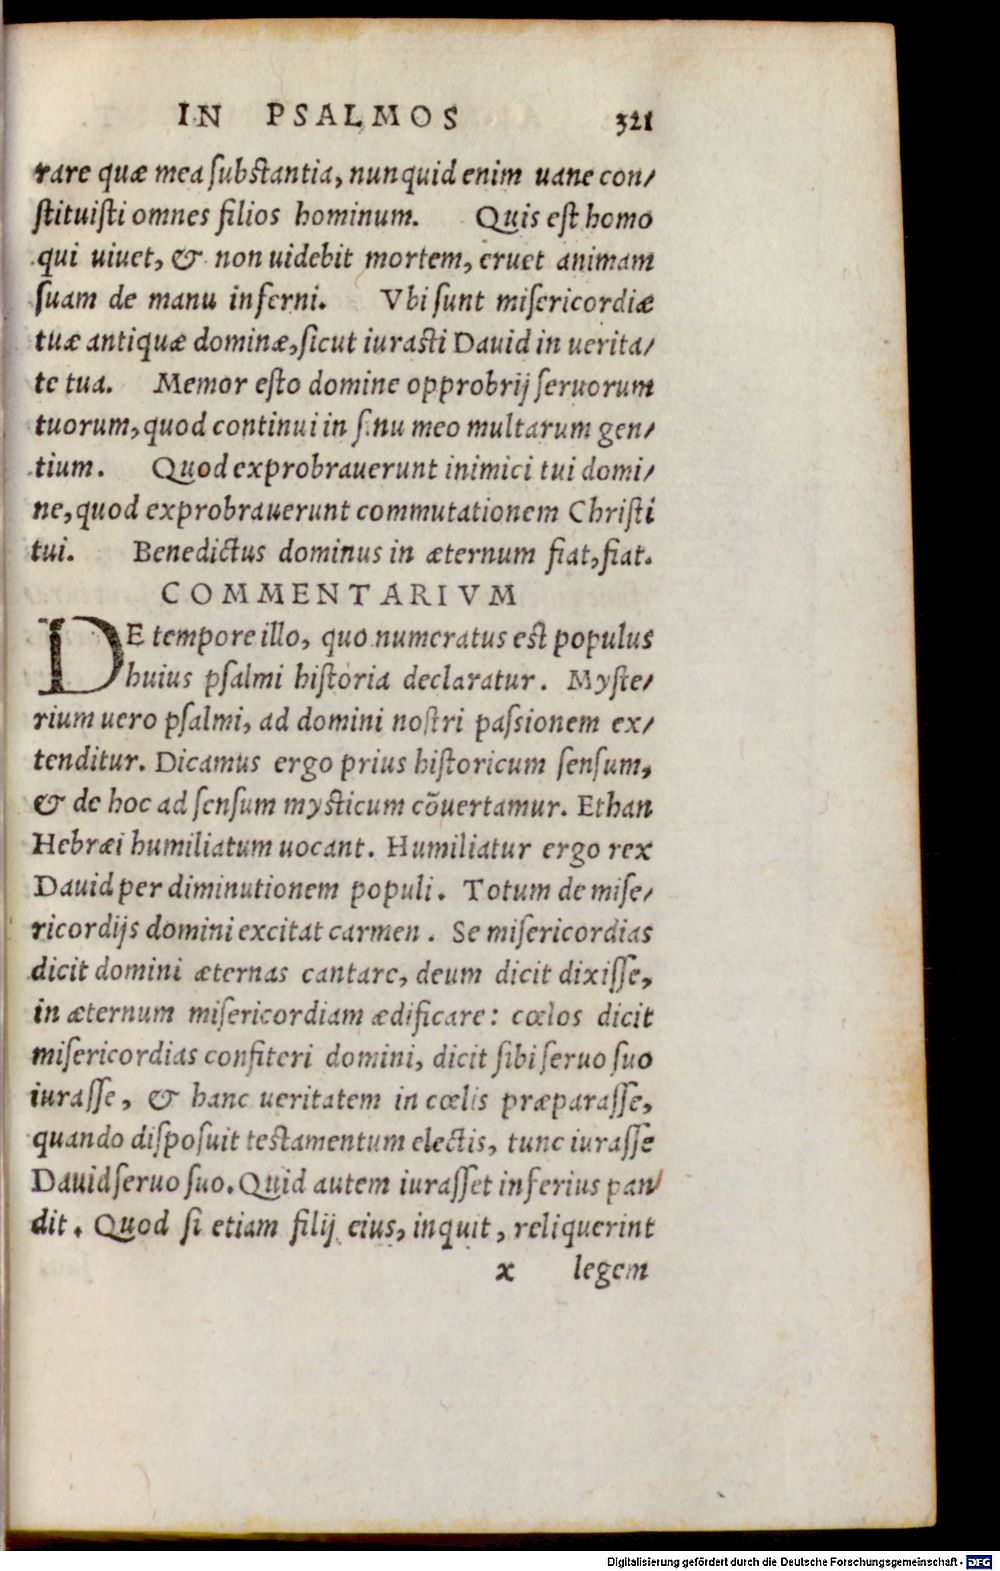 IN PSALMOS 321
rare quæ mea ſubſtantia, nunquid enim uane con/
ſtituiſti omnes filios hominum. Quis eſt homo
qui uiuet, & non uidebit mortem, eruet animam
ſuam de manu inferni. Vbi ſunt miſericordiæ
tuæ antiquæ dominæ, ſicut iuraſti Dauid in uerita/
te tua. Memor eſto domine opprobrij ſeruorum
tuorum, quod continui in ſinu meo multarum gen/
tium. Quod exprobrauerunt inimici tui domi/
ne, quod exprobrauerunt commutationem Chriſti
tui. Benedictus dominus in æternum fiat, fiat.
COMMENTARIVM
DE tempore illo, quo numeratus eſt populus
huius pſalmi hiſtoria declaratur. Myſte/
rium uero pſalmi, ad domini noſtri paſsionem ex/
tenditur. Dicamus ergo prius hiſtoricum ſenſum,
& de hoc ad ſenſum myſticum cōuertamur. Ethan
Hebræi humiliatum uocant. Humiliatur ergo rex
Dauid per diminutionem populi. Totum de miſe/
ricordijs domini excitat carmen. Se miſericordias
dicit domini æternas cantare, deum dicit dixiſſe,
in æternum miſericordiam ædificare: cœlos dicit
miſericordias confiteri domini, dicit ſibi ſeruo ſuo
iuraſſe, & hanc ueritatem in cœlis præparaſſe,
quando diſpoſuit teſtamentum electis, tunc iuraſſe
Dauid ſeruo ſuo. Quid autem iuraſſet inferius pan/
dit. Quod ſi etiam filij eius, inquit, reliquerint
x legem
Digitalisierung gefördert durch die Deutsche Forschungsgemeinschaft - DFG